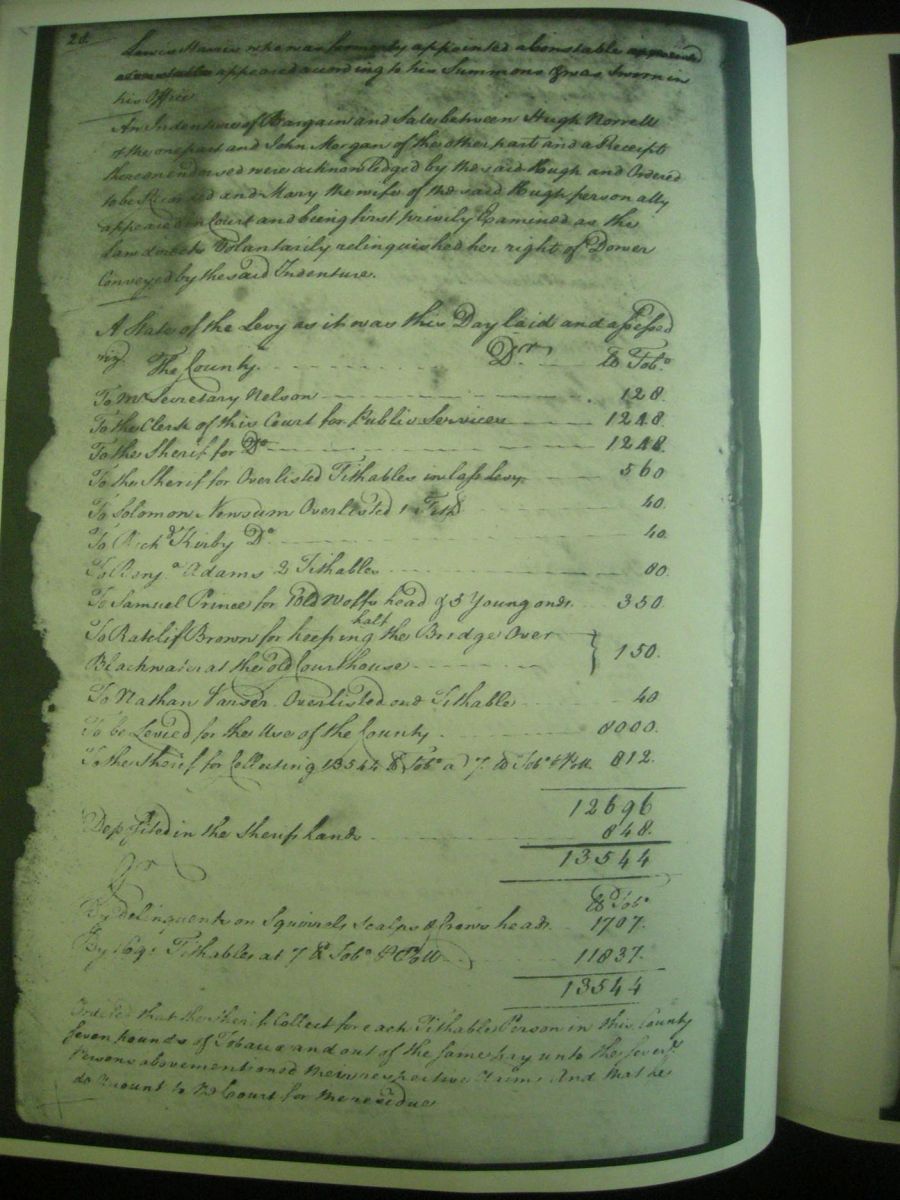 20
Lewis Harris who was formerly appointed a Constable appointed
a Constable appeared according to his Summons & was Sworn in
his Office
An Indenture of Bargain and Sale between Hugh Norrell
of the one part and John Morgan of the other part and a Receipt
thereon endorsed were acknowledged by the said Hugh and Ordered
to be Recorded and Mary the wife of the said Hugh personally
appeared in Court and being first privily Examined as the
Law directs Volantarily relinquished her right of Dower
Conveyed by the said Indenture.
A State of the Levy as it was this Day laid and assessed
viz. The County. Dr. lb Tobo
To Mr. Secretary Nelson 128.
To the Clerk of this Court for Public Services 1248.
To the Sherif for Do 1248.
To the Sherif for Overlisted Tithables in last Levy 560
To Solomon Newsum Overlisted 1 Tith. 40.
To Richd. Kirby Do 40.
To Benja. Adams 2 Tithables 80
To Samuel Prince for 1 old Wolfs head & 5 Young ones 350
To Ratclif Brown for keeping half the Bridge Over
Blackwater at the old Courthouse } 150.
To Nathan Vanser Overlisted one Tithable 40
To be Levied for the Use of the County 8000.
To the Sherif for Collecting 13544 lb Tobo a 7 lb Tobo Poll 812.
12696
Deposited in the Sherifs hands 848.
13544
Cr lb Tobo
By delinquents on Squirrels Scalps & Crows heads 1707.
By 1691 Tithables at 7 lb Tobo Poll 11837.
13544
Ordered that the Sherif Collect for each Tithable Person in this County
Seven Pounds of Tobacco and out of the same pay unto the several
Persons abovementioned their respective Claims And that he
do Account to the Court for the residue